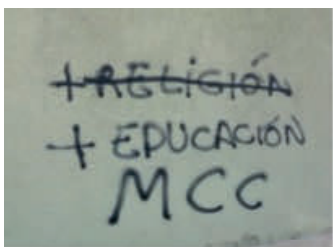 + RELIGIÓN
+ EDUCACIÓN
MCC